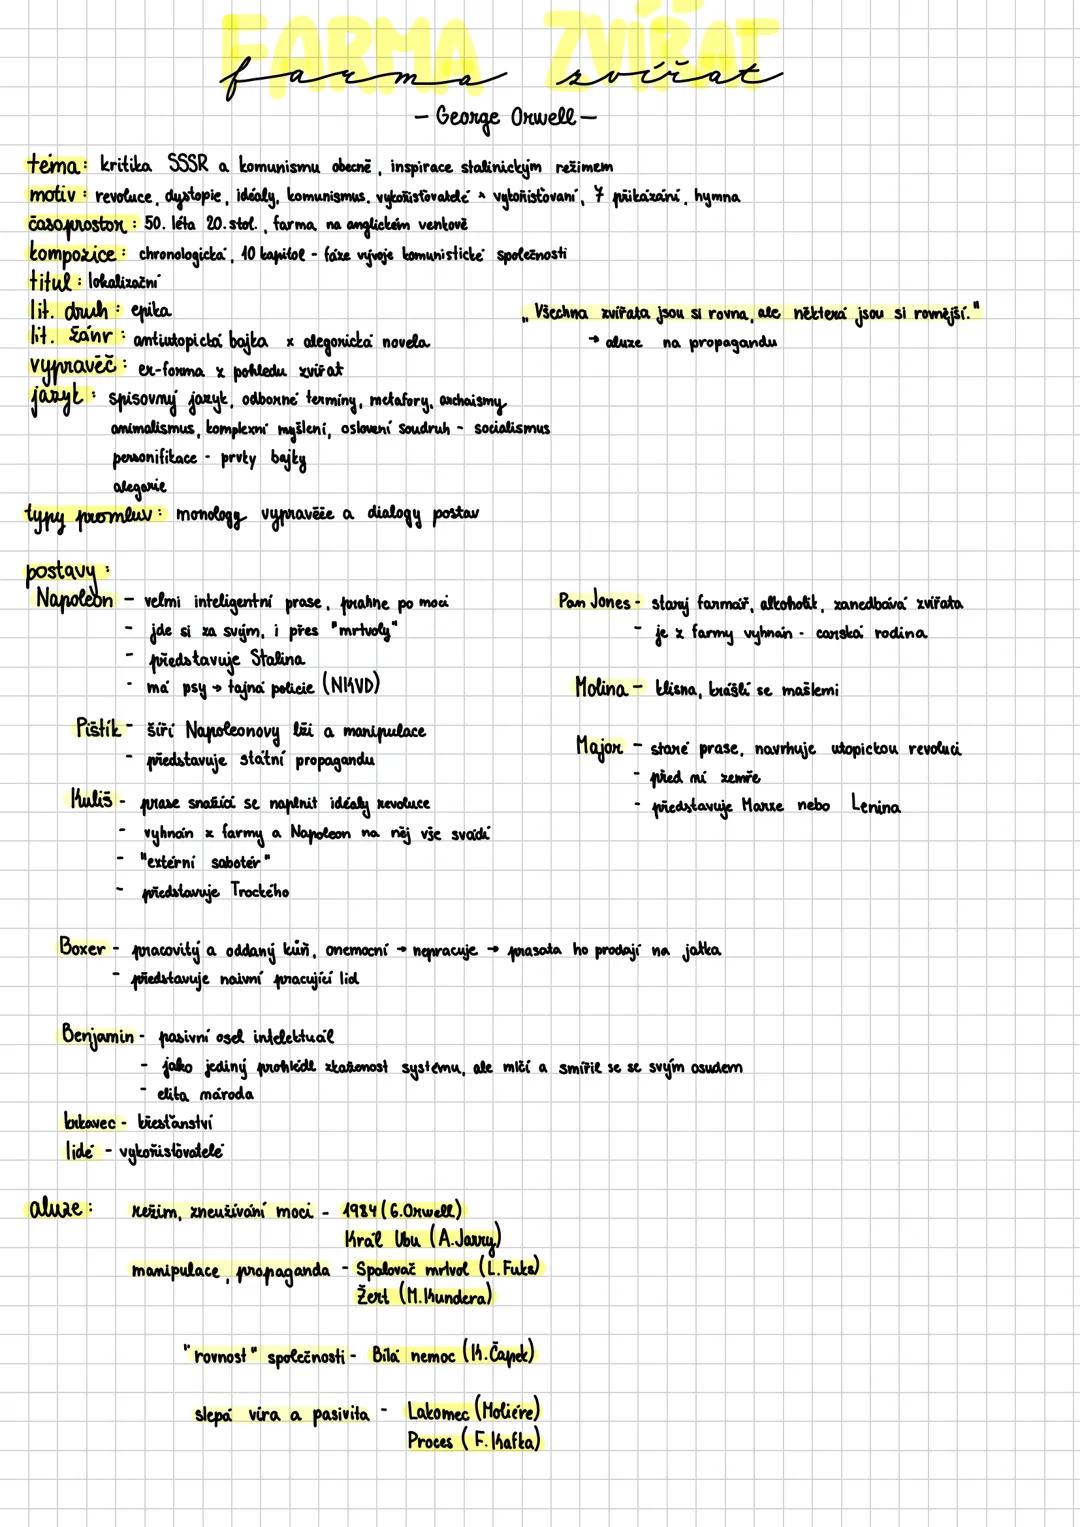 FARMA ZVÍŘAT
farma zvířat
- George Orwell -
téma: kritika SSSR a komunismu obecně, inspirace stalinickým režimem
motiv: revoluce, dystopie, idéaly, komunismus, vykořisťovatelé x vykořisťovaní, 7 přikázání, hymna
časoprostor: 50. léta 20. stol., farma na anglickém venkově
kompozice: chronologická, 10 kapitol - fáze vývoje komunistické společnosti
titul: lokalizační
lit. druh: epika
„Všechna zvířata jsou si rovna, ale některá jsou si rovnější."
lit. žánr: antiutopická bajka x alegorická novela
→ aluze na propagandu
vypravěč: er-forma z pohledu zvířat
jazyk: spisovný jazyk, odborné termíny, metafory, archaismy
animalismus, komplexní myšlení, oslovení soudruh - socialismus
personifikace - prvky bajky
alegorie
typy promluv: monology vypravěče a dialogy postav
postavy:
Napoleon - velmi inteligentní prase, prahne po moci
- jde si za svým, i přes "mrtvoly"
- představuje Stalina
- má psy → tajná policie (NKVD)
Pištík - šíří Napoleonovy lži a manipulace
- představuje státní propagandu
Kuliš - prase snažící se naplnit idéaly revoluce
- vyhnán z farmy a Napoleon na něj vše svádí
- "externí sabotér"
- představuje Trockého
Pan Jones - starý farmář, alkoholik, zanedbává zvířata
- je z farmy vyhnán - carská rodina
Molina - klisna, krášlí se mašlemi
Major - staré prase, navrhuje utopickou revoluci
- před ní zemře
- představuje Marxe nebo Lenina
Boxer - pracovitý a oddaný kůň, onemocní → nepracuje → prasata ho prodají na jatka
- představuje naivní pracující lid
Benjamin - pasivní osel intelektuál
- jako jediný prohlédl zkaženost systému, ale mlčí a smířil se se svým osudem
- elita národa
krkavec - křesťanství
lidé - vykořisťovatelé
aluze: režim, zneužívání moci - 1984 (G. Orwell)
Král Ubu (A. Jarry)
manipulace, propaganda - Spalovač mrtvol (L. Fuks)
Žert (M. Kundera)
"rovnost" společnosti - Bílá nemoc (K. Čapek)
slepá víra a pasivita - Lakomec (Moliére)
Proces (F. Kafka)